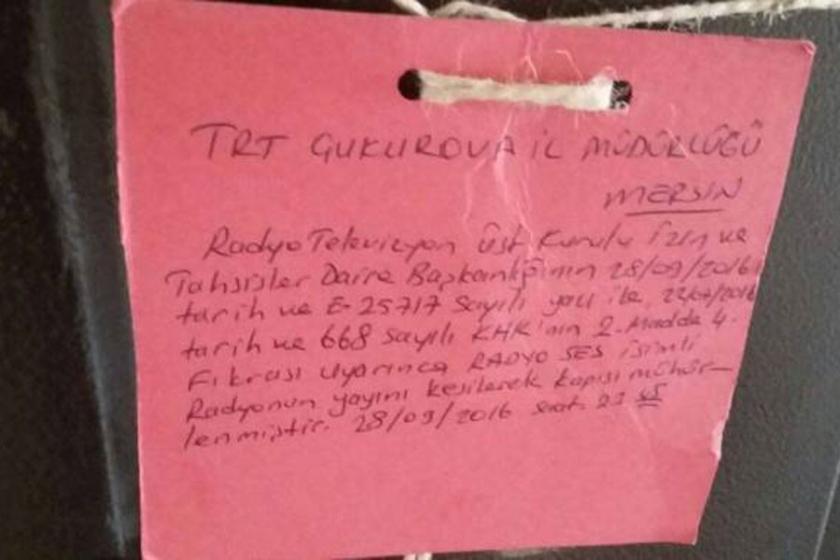 TRT ÇUKUROVA İL MÜDÜRLÜĞÜ
MERSİN
Radyo Televizyon Üst Kurulu İzin ve
Tahsisler Daire Başkanlığının 28/09/2016
tarih ve E-25717 Sayılı yazı ile, 27/07/2016
tarih ve 668 sayılı KHK'nın 2. Madde 4.
Fıkrası uyarınca RADYO SES isimli
Radyonun yayını kesilerek kapısı mühür-
lenmiştir. 28/09/2016 saat: 21 45